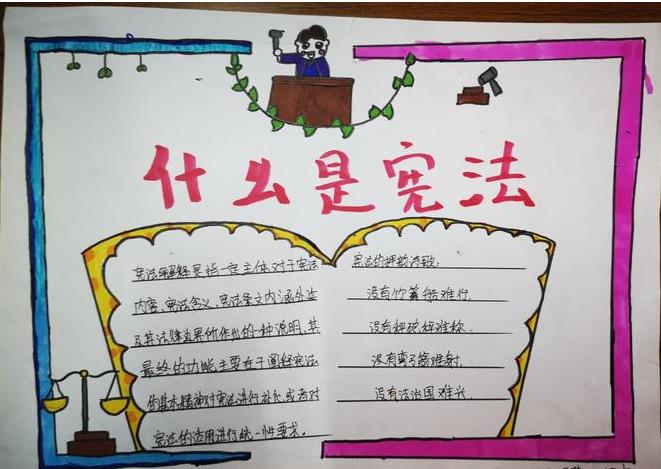 什么是宪法
宪法解释是指一定主体对于宪法
内容、宪法含义、宪法条文内涵外延
及其法律边界所作出的一种说明,其
最终的功能主要在于阐释宪法
的基本精神对宪法进行补充或者对
宪法的适用进行统一性要求。
宪法的押韵诗歌:
没有竹篙船难行,
没有秤砣秤难称,
没有弯弓箭难射,
没有法治国难兴,